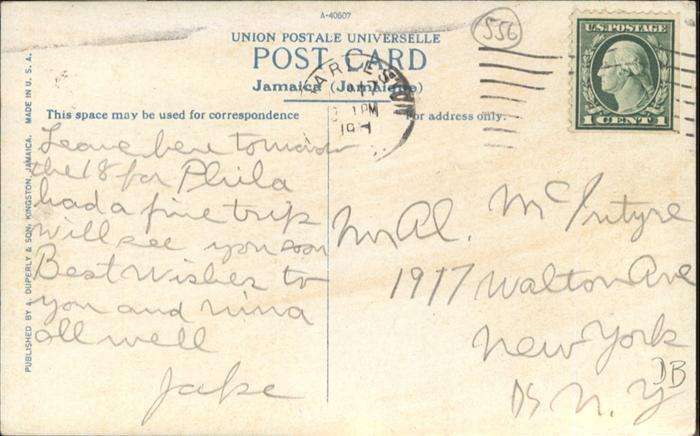 A-40507
UNION POSTALE UNIVERSELLE
POST CARD
Jamaica (Jamaïque)
This space may be used for correspondence
For address only.
556
U.S. POSTAGE
1 CENT 1
1 PM
PUBLISHED BY A. DUPERLY & SON, KINGSTON, JAMAICA. MADE IN U. S. A.
Leave here tomorrow
the 18 for Phila
had a fine trip
will see you soon
Best Wishes to
you and nina
all well
Jake
Mr Al. McIntyre
1917 Walton Ave
New York
N. Y
DB